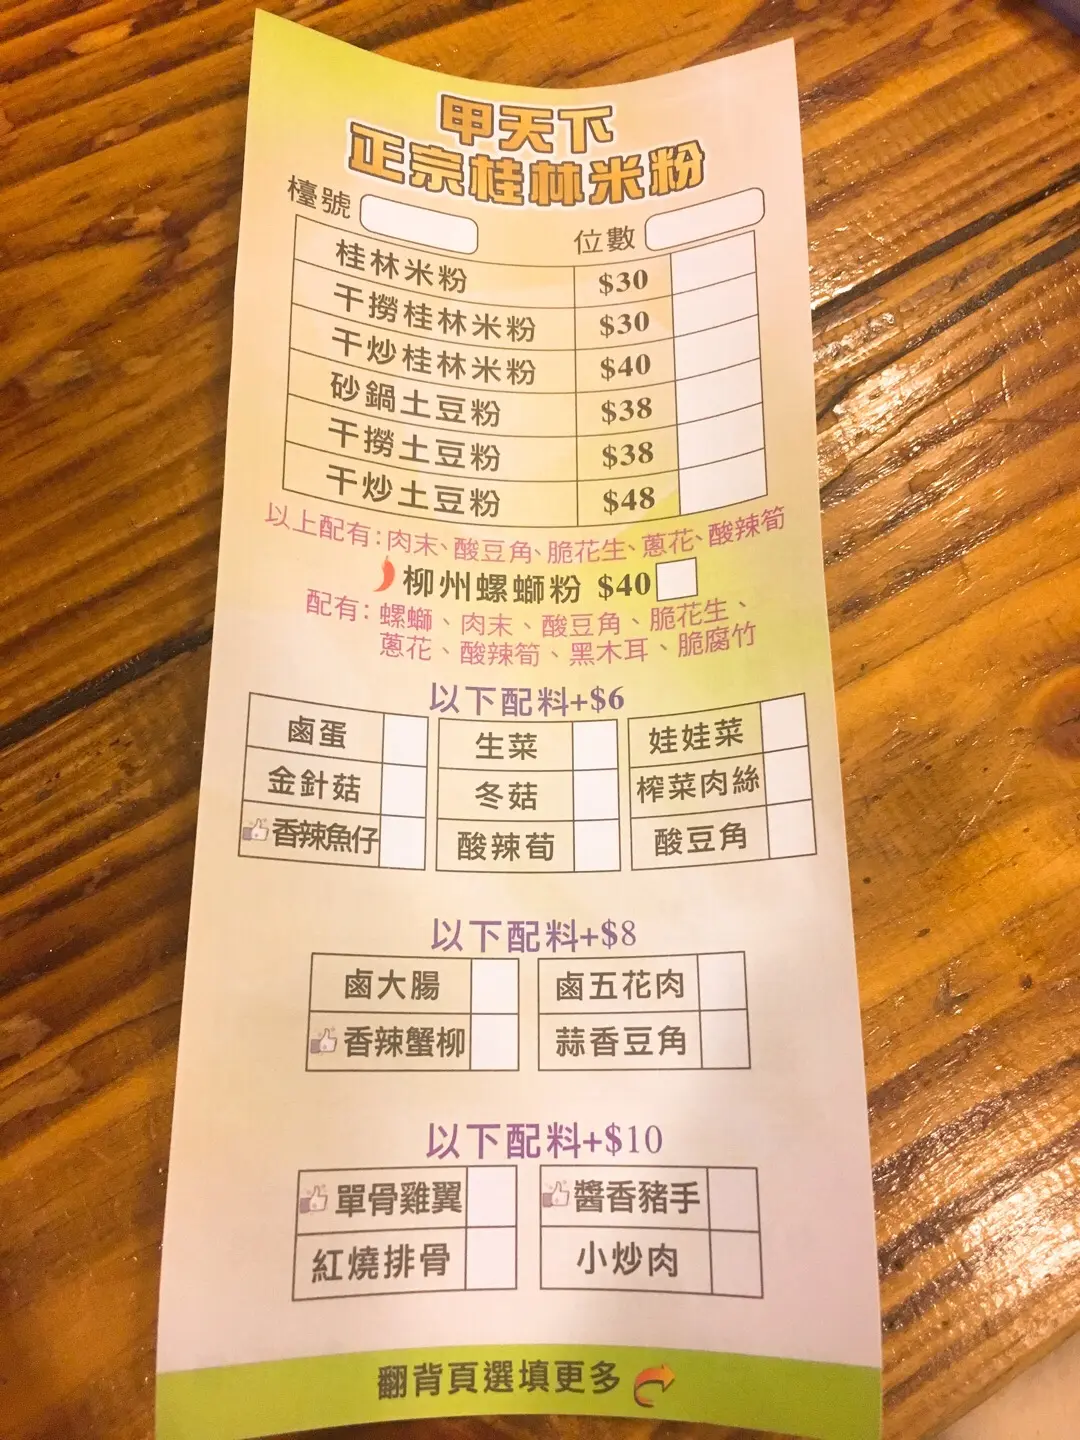 甲天下
正宗桂林米粉
檯號
位數
桂林米粉 $30
干撈桂林米粉 $30
干炒桂林米粉 $40
砂鍋土豆粉 $38
干撈土豆粉 $38
干炒土豆粉 $48
以上配有：肉末、酸豆角、脆花生、蔥花、酸辣筍
柳州螺螄粉 $40
配有：螺螄、肉末、酸豆角、脆花生、
蔥花、酸辣筍、黑木耳、脆腐竹
以下配料+$6
鹵蛋 生菜 娃娃菜
金針菇 冬菇 榨菜肉絲
香辣魚仔 酸辣荀 酸豆角
以下配料+$8
鹵大腸 鹵五花肉
香辣蟹柳 蒜香豆角
以下配料+$10
單骨雞翼 醬香豬手
紅燒排骨 小炒肉
翻背頁選填更多